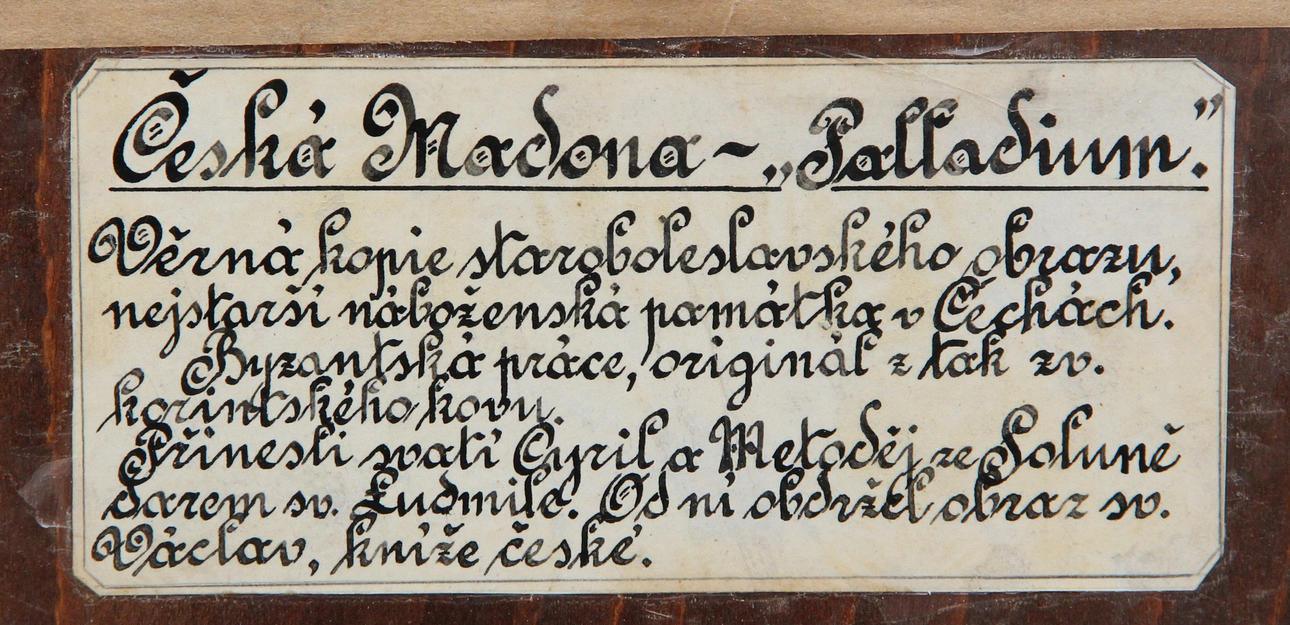 Česká Madona ~ „Palladium."
Věrná kopie staroboleslavského obrazu,
nejstarší náboženská památka v Čechách.
Byzantská práce, originál z tak zv.
korintského kovu.
Přinesli svatí Cyril a Metoděj ze Soluně
darem sv. Ludmile. Od ní obdržel obraz sv.
Václav, kníže české.